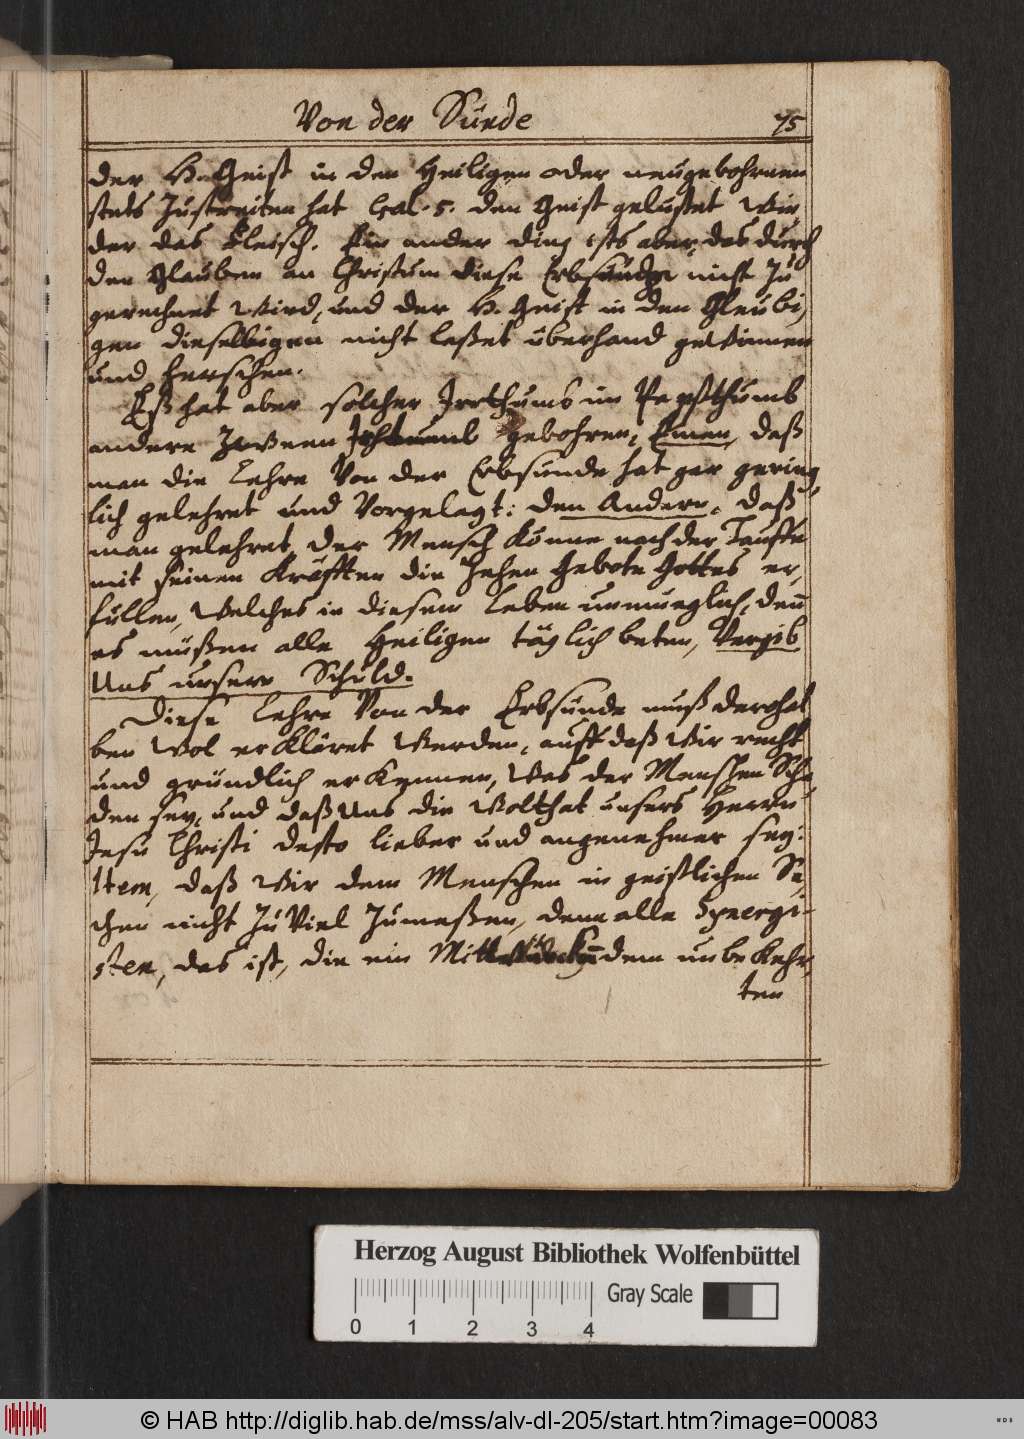 Von der Sünde
75
der H. Geist in den Heiligen oder neugebohrnen
stets zustreiten hat Gal. 5. den Geist gelüstet wi,
der das Fleisch. Ein ander ding ists aber, das durch
den Glauben an Christum diese Erbsünde nicht zu
gerechnet wird, und der H. Geist in den Gleubi,
gen dieselbigen nicht leßet überhand gewinnen
und herschen.
Eß hat aber solcher Irrthums im Papstthumb
andere zween gebohren, Einen, daß
man die Lehre von der Erbsünde hat gar gering
lich gelehret und vorgelegt: den Andern, daß
man gelehret, der Mensch könne nach der Tauffe
mit seinen Kräfften die Zehen Gebote Gottes er,
füllen, welches in diesem Leben unmueglich, denn
es müßen alle Heiligen täglich beten, Vergib
Uns unsere Schuld.
Diese Lehre von der Erbsünde muß derohal
ben wol erkläret werden, auff daß wir recht
und gründlich erkennen, was der Menschen Scha
den sey, und daß uns die wolthat unsers Herrn
Jesu Christi desto lieber und angenehmer sey:
Item, daß wir dem Menschen in geistlichen Sa,
chen nicht zu viel zumeßen, denn alle Synergi-
sten, das ist, die ein dem unbekehr,
ten
Herzog August Bibliothek Wolfenbüttel
Gray Scale
0 1 2 3 4
© HAB http://diglib.hab.de/mss/alv-dl-205/start.htm?image=00083
WDB